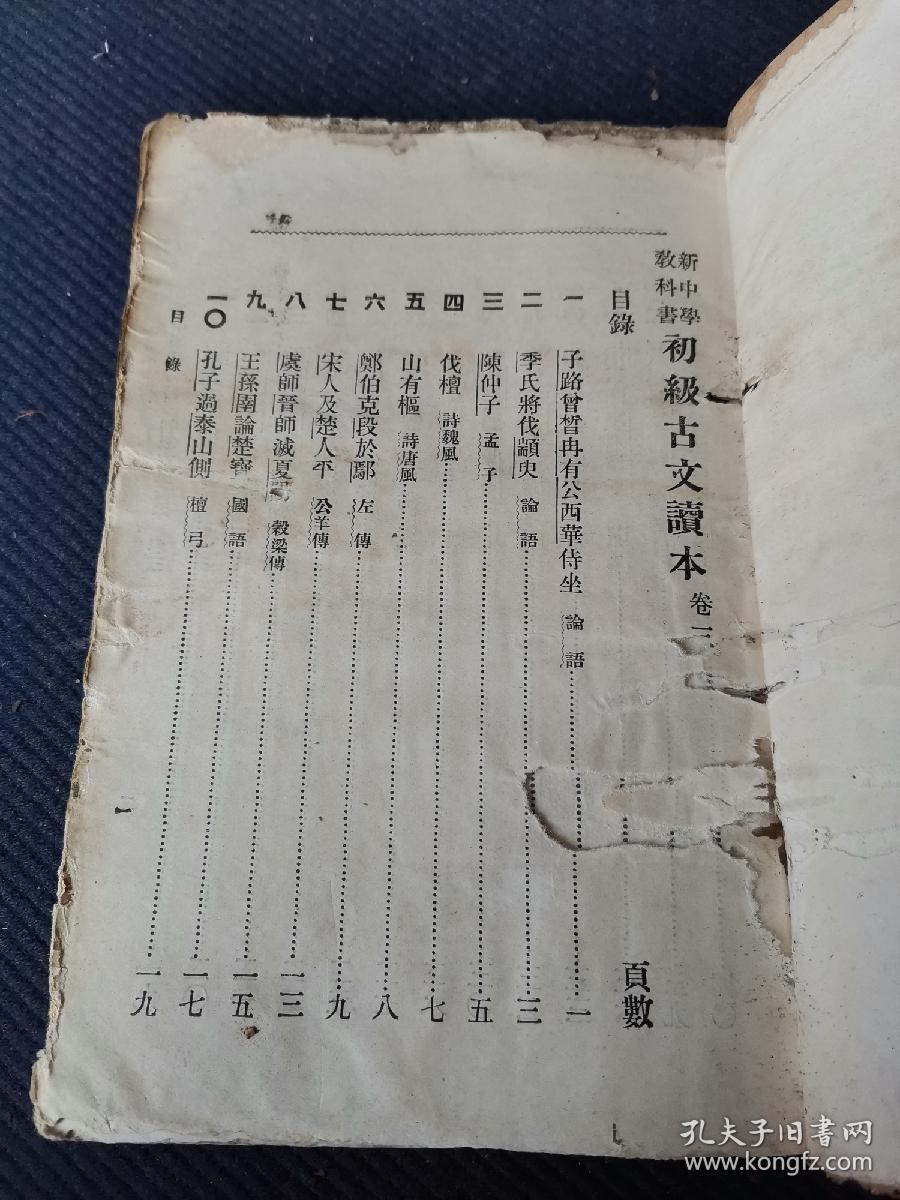 新中學
教科書
初級古文讀本 卷三
目錄 頁數
一 子路曾晳冉有公西華侍坐 論語 一
二 季氏將伐顓臾 論語 三
三 陳仲子 孟子 五
四 伐檀 詩魏風 七
五 山有樞 詩唐風 八
六 鄭伯克段於鄢 左傳 九
七 宋人及楚人平 公羊傳 一三
八 虞師晉師滅夏 穀梁傳 一五
九 王孫圉論楚寶 國語 一七
一〇 孔子過泰山側 檀弓 一九
目錄
一
孔夫子旧书网
www.kongfz.com